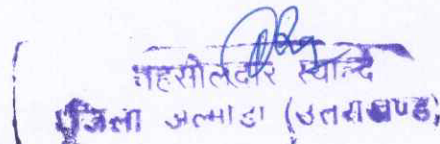 तहसीलदार स्याल्दे
जिला अल्मोड़ा (उत्तराखण्ड)